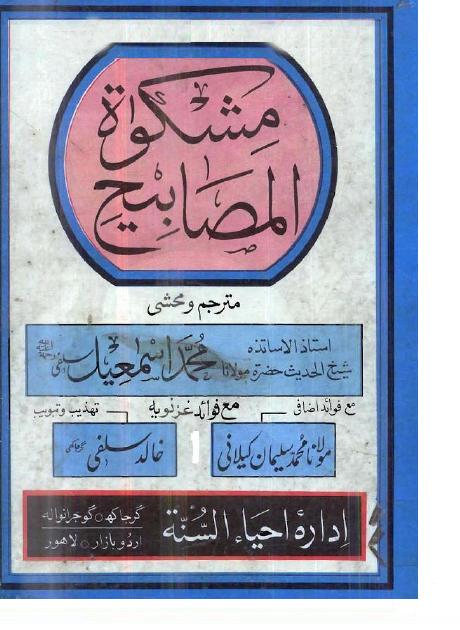 مشکواة
المصابیح
مترجم ومحشی
استاذ الاساتذہ
شیخ الحدیث حضرة مولانا محمد اسمٰعیل سلفی رحمۃ اللہ علیہ
مع فوائد غزنویہ
مع فوائد اضافی
مولانا محمد سلیمان کیلانی
تہذیب وتبویب
خالد سلفی گرجاکھی
1
ادارہ احیاء السُّنّۃ
گرجاکھ ○ گوجرانوالہ
اردو بازار ○ لاہور